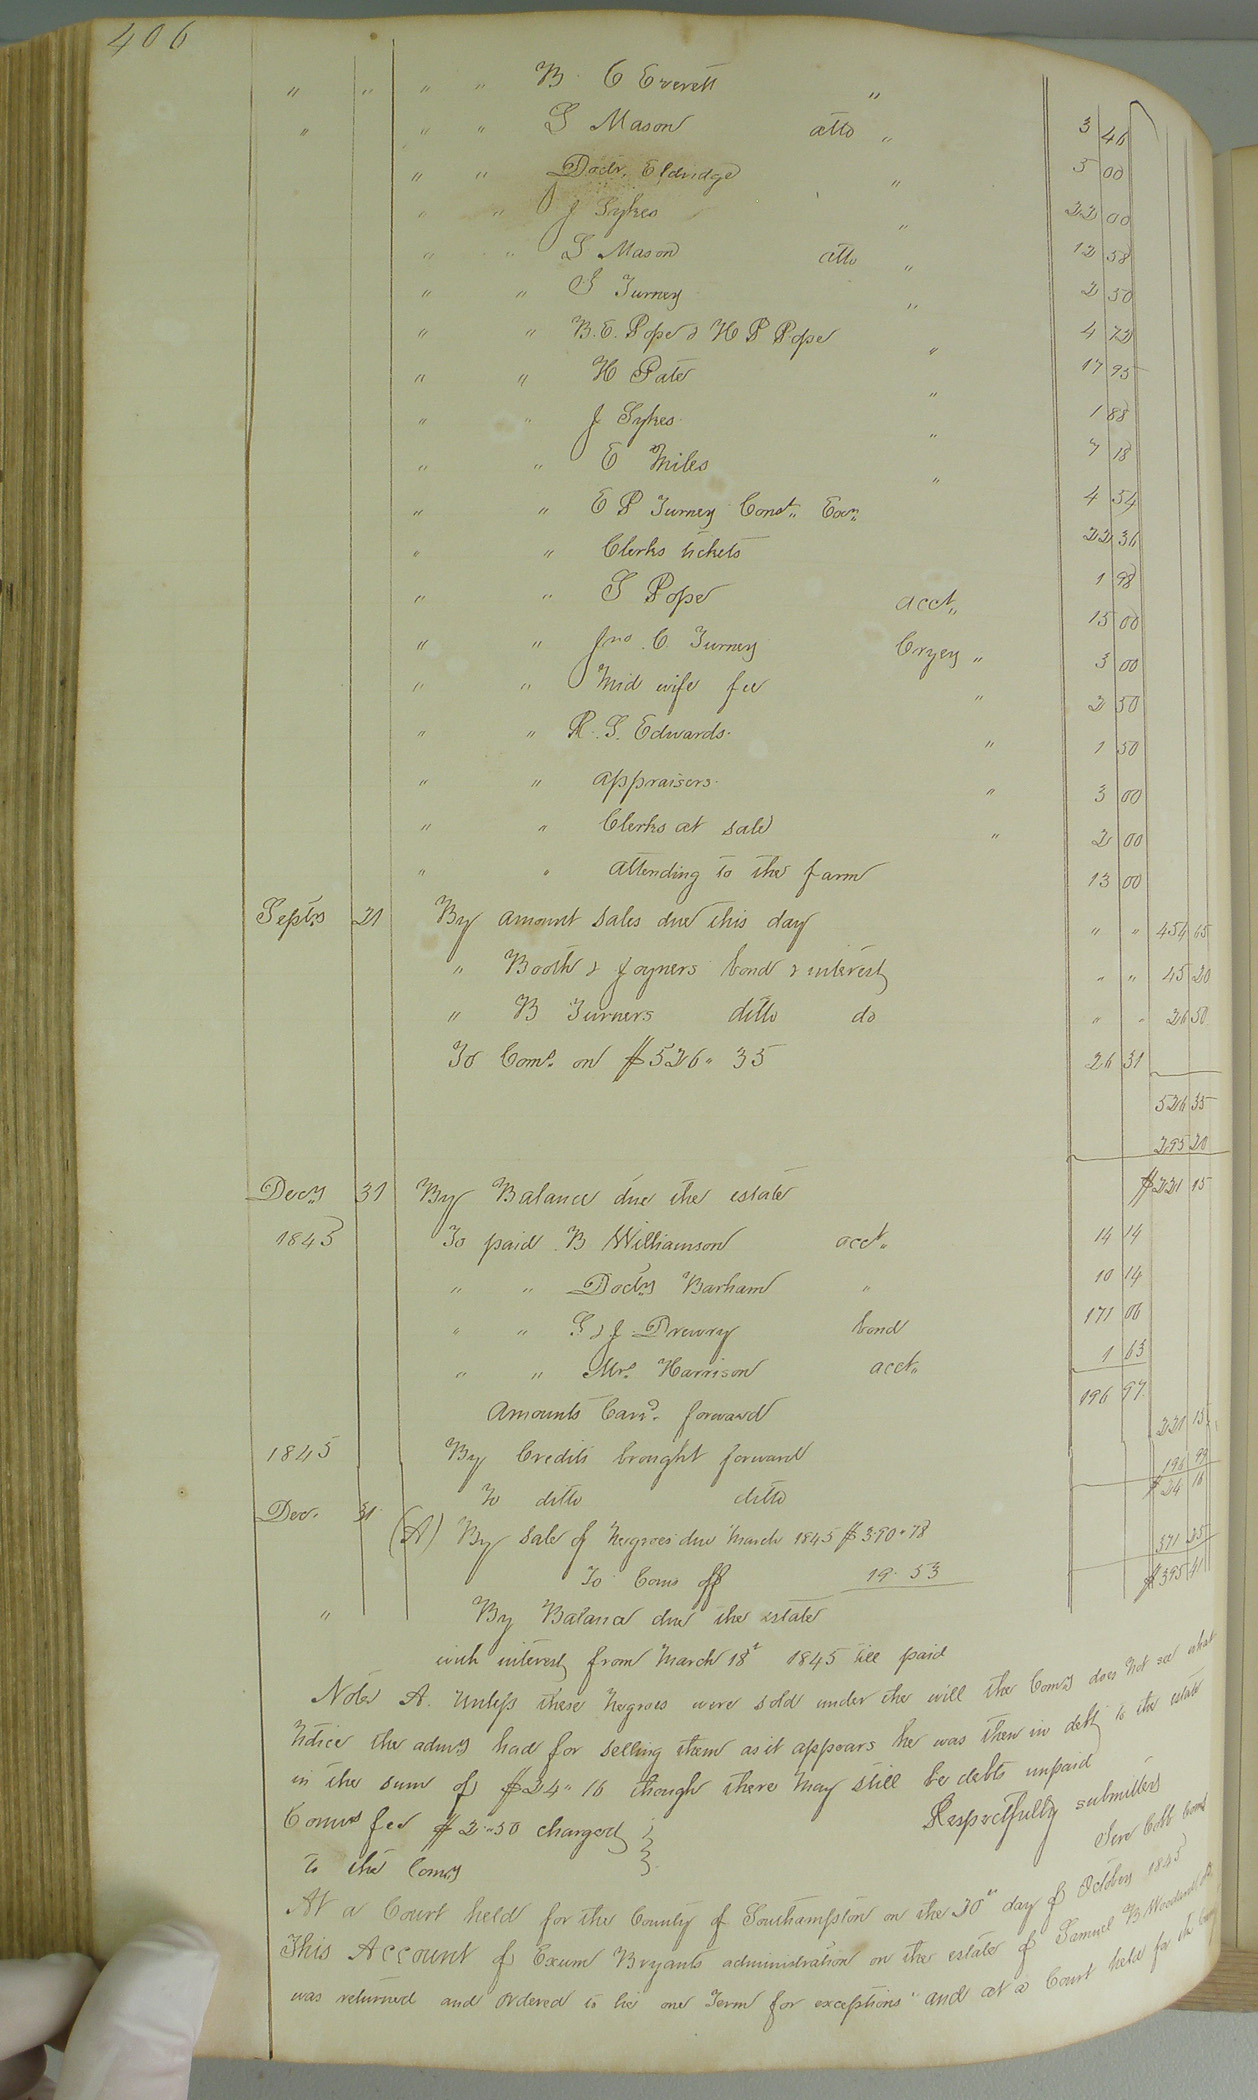 406
" " " " B. C Everett " 3 46
" " " S Mason atto " 5 00
" " Doctr. Eldridge " 22 00
" " J Sykes " 12 58
" " S Mason atto " 2 50
" " S Turney " 4 72
" " B. E. Pope & H P Pope " 17 95
" " H Pate " 1 88
" " J Sykes " 7 18
" " E Miles " 4 54
" " E P Turney Const. Exn. 22 36
" " Clerks tickets 1 98
" " S Pope acct. 15 00
" " Jno. C. Turney Cryey " 3 00
" " Mid wife fee " 2 50
" " R. S. Edwards. " 1 50
" " appraisers. " 3 00
" " Clerks at sale " 2 00
" " attending to the farm 13 00
Septr 21 By amount Sales due this day " " 454 65
" Booth & Joyners bond & interest " " 45 20
" B Turners ditto do " " 26 50
To Coms. on $526 " 35 26 31
526 35
295 20
Decr 31 By Balance due the estate $221 15
1843 To paid B Williamson acct. 14 14
" " Doctr Barham " 10 14
" " S & J Drewry bond 171 06
" " Mrs. Harrison acct. 1 63
Amounts Carrd. forward 196 97
221 15
1845 By Credits brought forward
To ditto ditto 196 99
$24 16
Dec. 31 (A) By Sale of Negroes due March 1845 $390 " 78
To Coms off 19. 53 371 25
" By Balance due the estate $395 41
with interest from March 18t 1845 till paid
Note A. Unless these Negroes were sold under the will the Comr does not see what
Notice the admr had for selling them as it appears he was then in debt to the estate
in the sum of $24 " 16 though there may still be debts unpaid
Respectfully submitted
Comrs fee $2 " 50 charged
to the Comr
Cobb
At a Court held for the County of Southampton on the 20th day of October 1845
This Account of Exum Bryants administration on the estate of Samuel B Woodard
was returned and ordered to lie one Term for exceptions and at a Court held for the